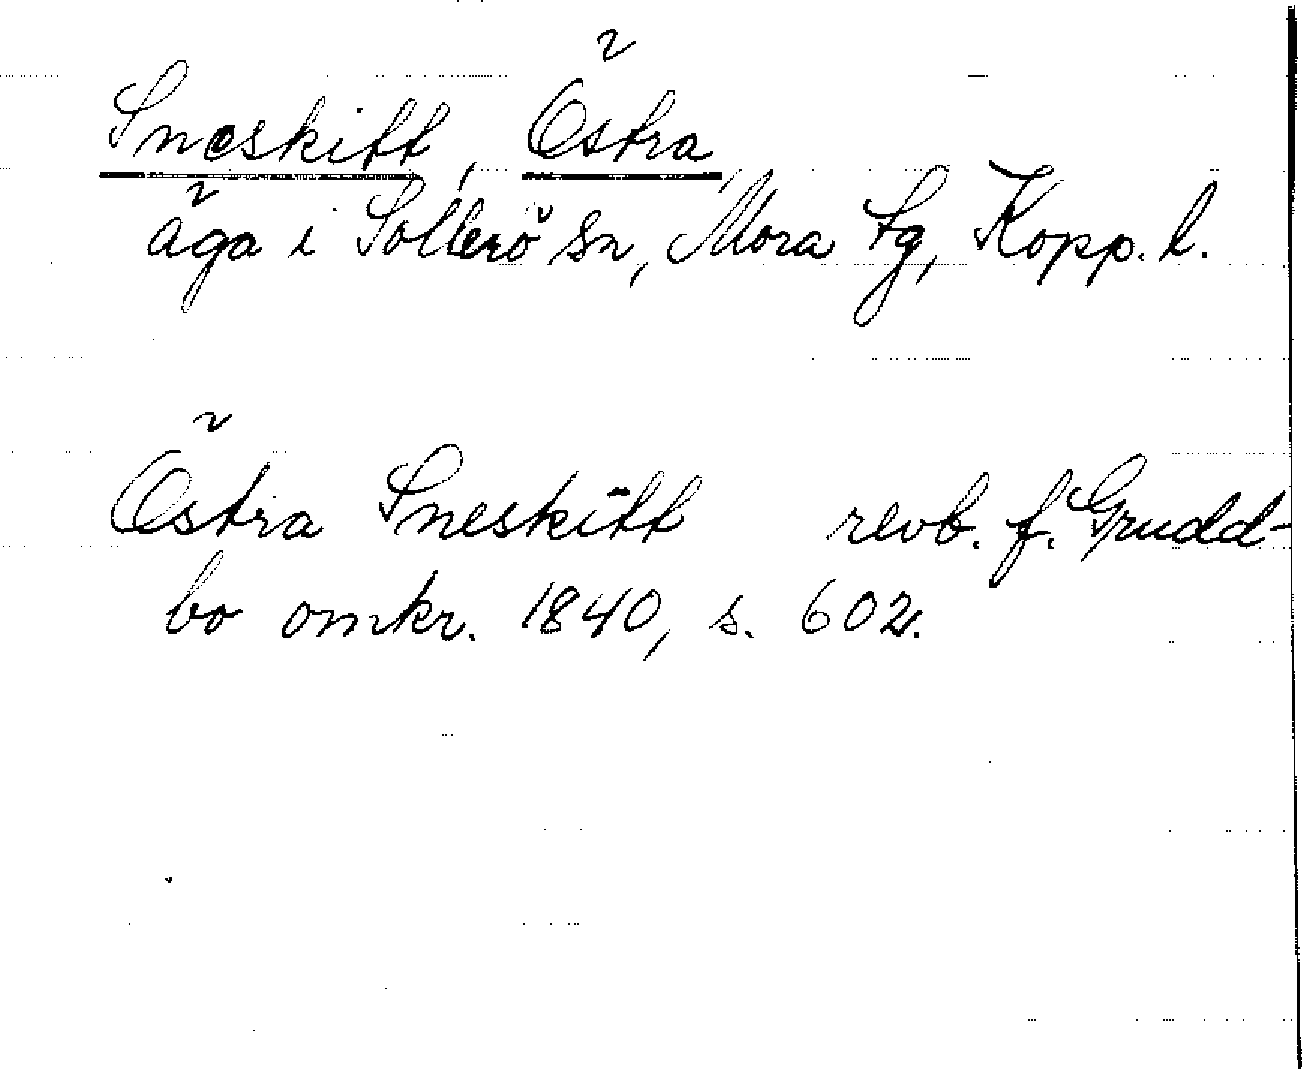 Sneskift, Östra,
äga i Sollerö sn, Mora tg, Kopp. l.
Östra Sneskift revb. f. Grudd-
bo omkr. 1840, s. 602.